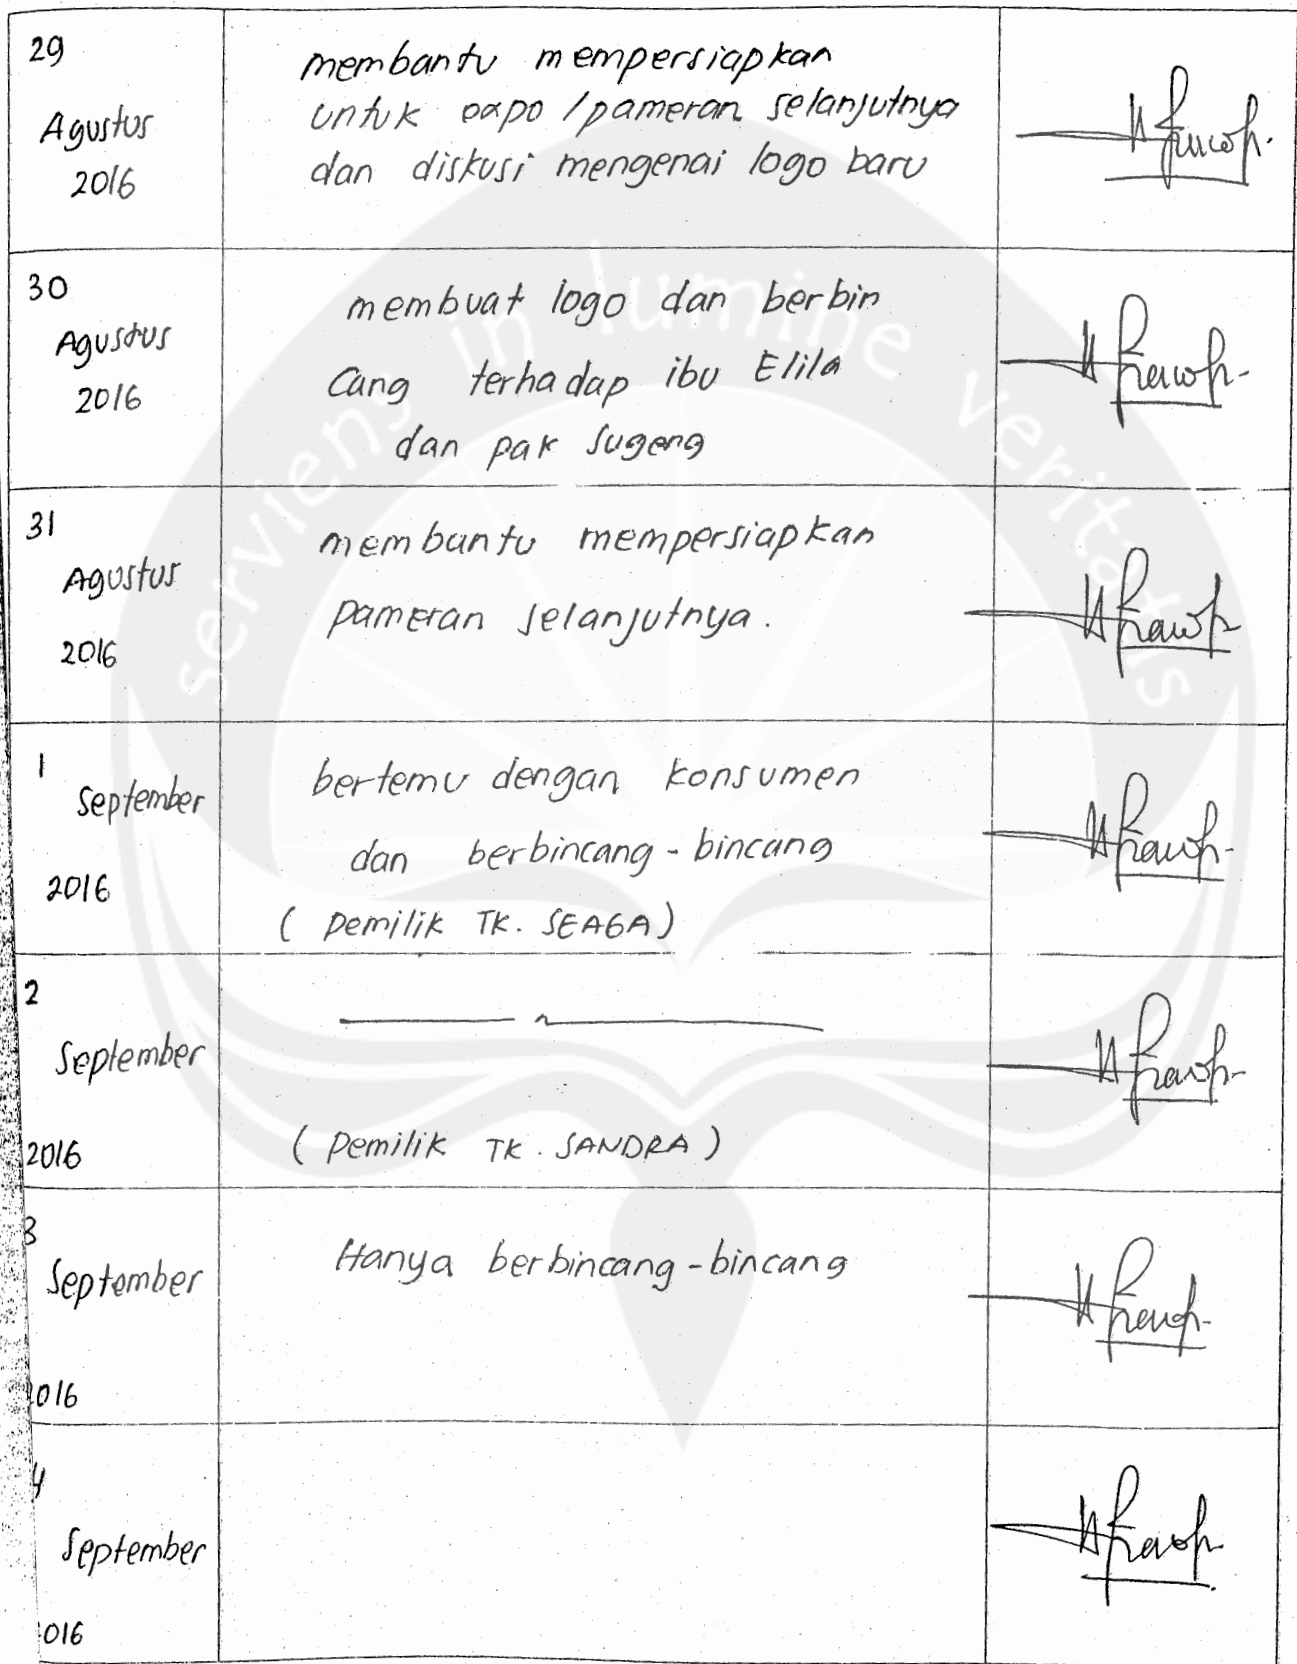 29
Agustus
2016
membantu mempersiapkan
untuk expo / pameran selanjutnya
dan diskusi mengenai logo baru
30
Agustus
2016
membuat logo dan berbin
cang terhadap ibu Elila
dan pak Sugeng
31
Agustus
2016
membantu mempersiapkan
pameran selanjutnya.
1
September
2016
bertemu dengan konsumen
dan berbincang - bincang
( pemilik TK. SEAGA )
2
September
2016
( pemilik TK. SANDRA )
3
September
2016
Hanya berbincang - bincang
4
September
016
serviens in lumine veritatis